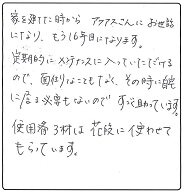 家を建てた時から アクアスさんにお世話
になり、もう16年目になります。
定期的にメンテナンスに入っていただける
ので、面倒なこともなく、その時に自宅
に居る必要もないので ずっと助かっています。
使用済み材は花紋に使わせて
もらっています。